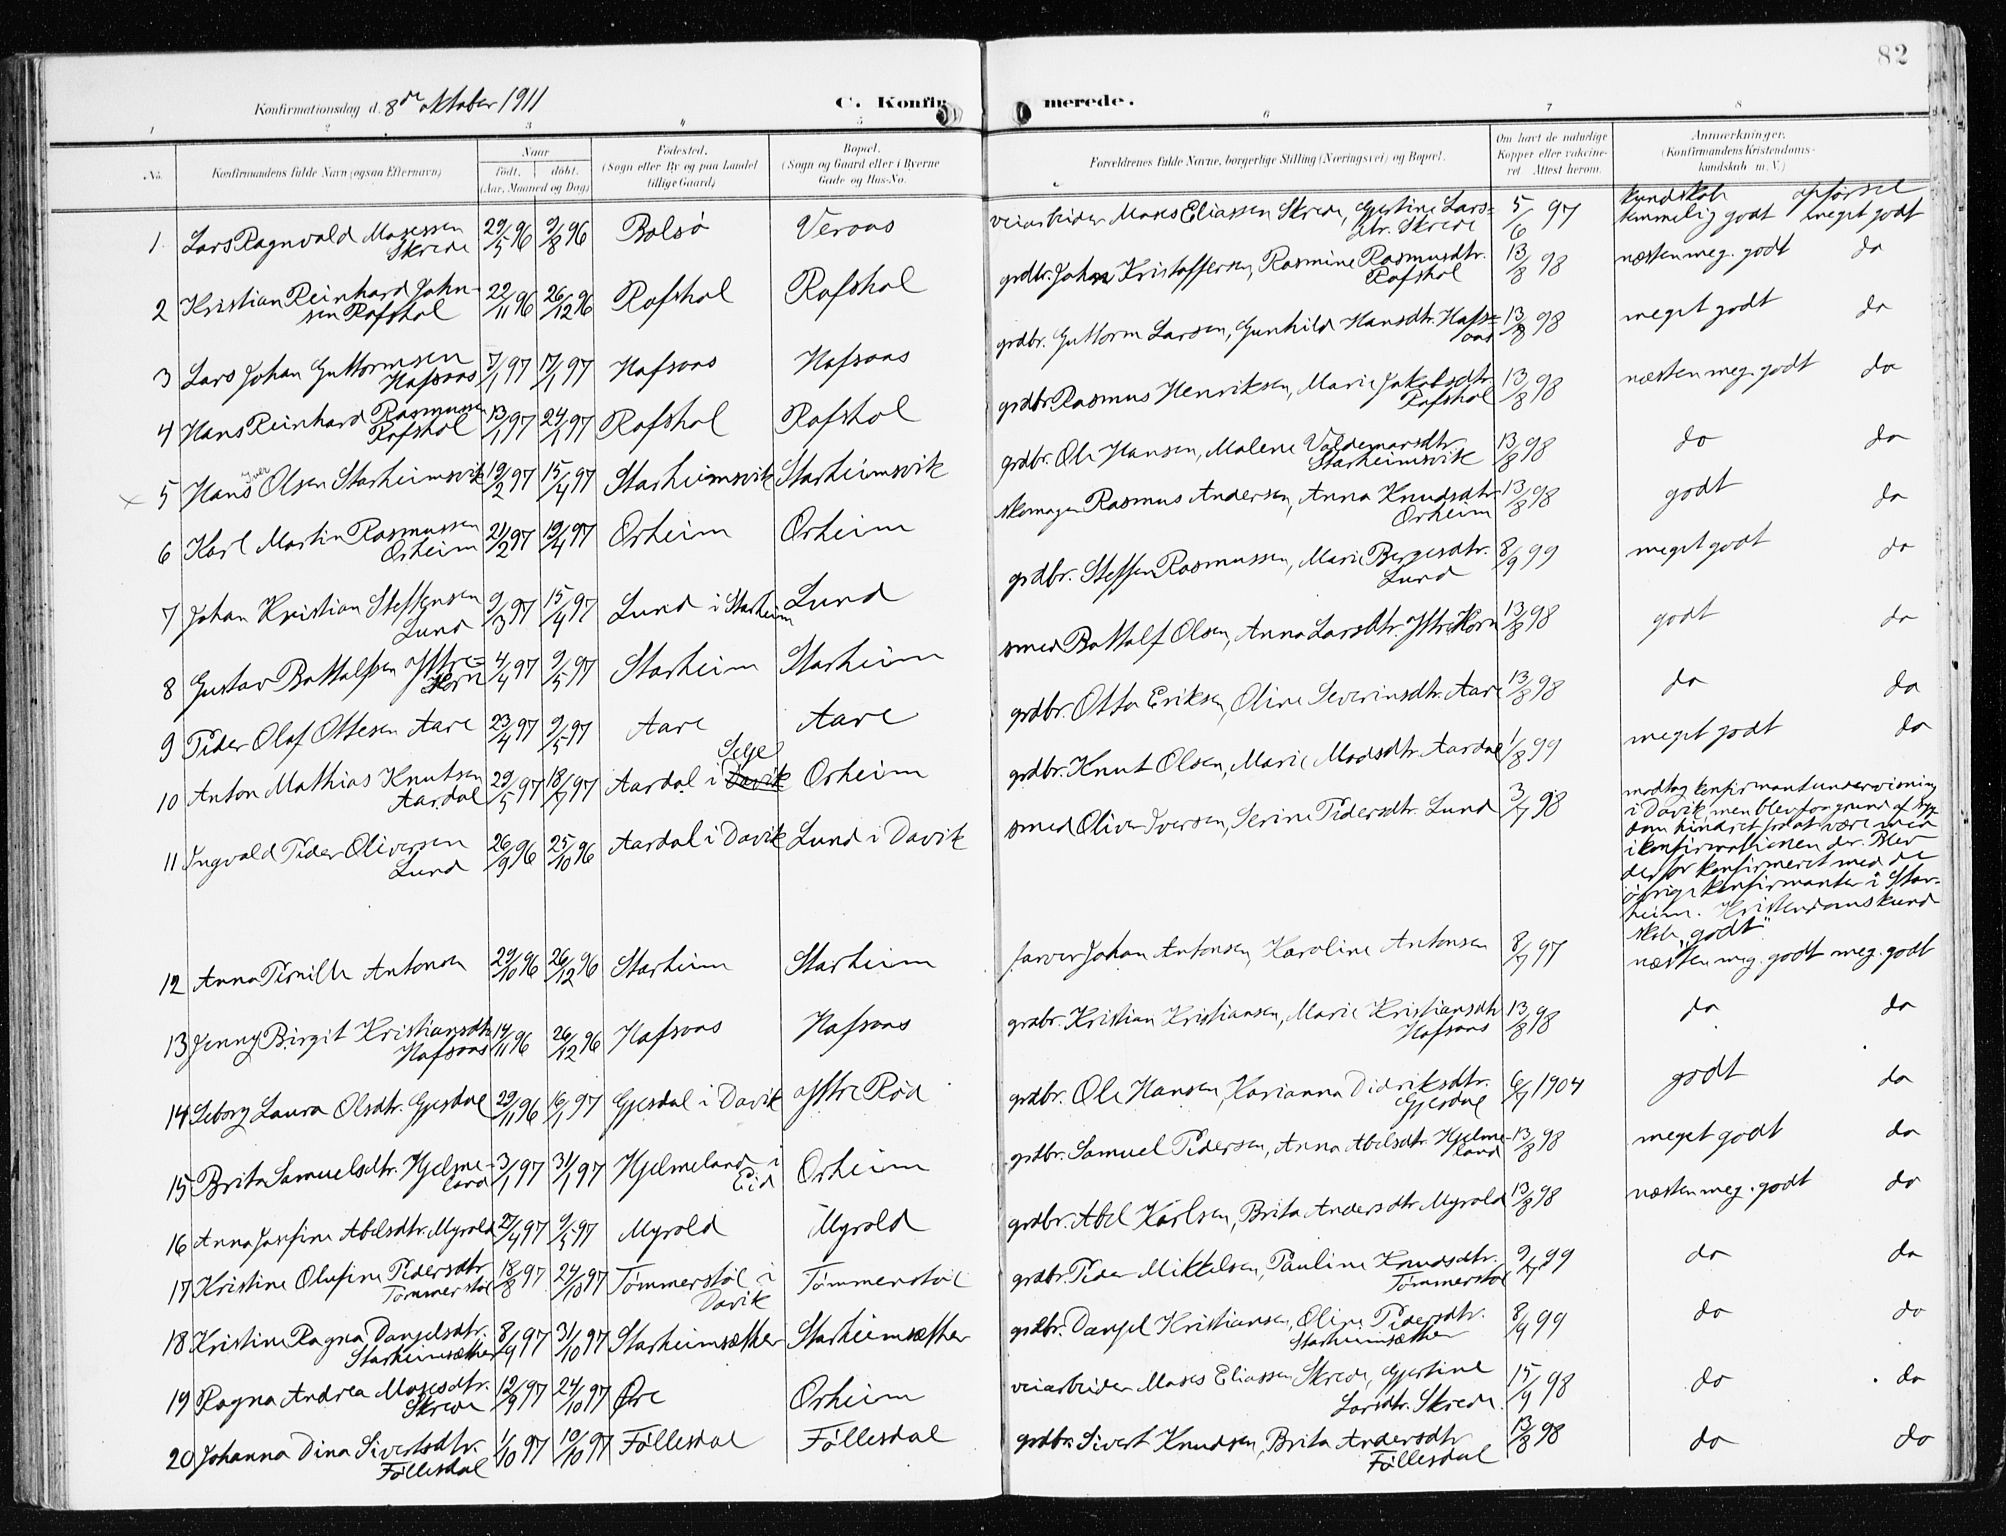 82
Konfirmationsdag d. 8de oktober 1911 C. Konfirmerede.
1 2 3 4 5 6 7 8
No. Konfirmandens fulde Navn (ogsaa Efternavn) Naar født, døbt. (Aar, Maaned og Dag) Fødested. (Sogn eller By og paa Landet tillige Gaard) Bopæl. (Sogn og Gaard eller i Byerne Gade og Hus-No. Forældrenes fulde Navne, borgerlige Stilling (Næringsvei) og Bopæl. Om havt de naturlige Kopper eller vakcineret. Attest herom. Anmærkninger. (Konfirmandens Kristendomskundskab m. V.)
kundskab opførsel
1 Lars Ragnvald Mosessen Skrede 29/5 96 9/8 96 Bolsø Veraas veiarbeider Moses Eliassen Skrede, Gjertine Larsdtr. Skrede 5/6 97 temmelig godt meget godt
2 Kristian Reinhard Johnsen Rafshol 22/11 96 26/12 96 Rafshol Rafshol grdbr. John Kristoffersen, Rasmine Rasmusdtr. Rafshol 13/8 98 næsten meg. godt do
3 Lars Johan Guttormsen Hafsaas 7/1 97 17/1 97 Hafsaas Hafsaas grdbr. Guttorm Larsen, Gunhild Hansdtr. Hafsaas 13/8 98 meget godt do
4 Hans Reinhard Rasmussen Rafshol 13/1 97 24/1 97 Rafshol Rafshol grdbr. Rasmus Henriksen, Marie Jakobsdtr. Rafshol 13/8 98 næsten meg. godt do
x 5 Hans Iver Olsen Starheimsvik 19/2 97 15/4 97 Starheimsvik Starheimsvik grdbr. Ole Hansen, Malene Valdemarsdtr. Starheimsvik 13/8 98 do do
6 Karl Martin Rasmussen Orheim 21/2 97 19/4 97 Orheim Orheim skomager Rasmus Andersen, Anna Knudsdtr. Orheim 13/8 98 godt do
7 Johan Kristian Steffensen Lund 9/3 97 15/4 97 Lund i Starheim Lund grdbr. Steffen Rasmussen, Marie Bergesdtr. Lund 8/9 99 meget godt do
8 Gustav Bottolfsen Yttre-Horn 4/4 97 9/5 97 Starheim Starheim smed Bottolf Olsen, Anna Larsdtr. Yttre Horn 13/8 98 godt do
9 Peder Olaf Ottesen Aare 23/4 97 9/5 97 Aare Aare grdbr. Otto Eriksen, Oline Severinsdtr. Aare 13/8 98 do do
10 Anton Mathias Knutsen Aardal 29/5 97 18/7 97 Aardal i Davik Selje Orheim grdbr. Knut Olsen, Marie Madsdtr. Aardal 1/8 99 meget godt do
11 Ingvald Peder Oliversen Lund 26/9 96 25/10 96 Aardal i Davik Lund i Davik smed Oliver Iversen, Serine Pedersdtr. Lund 3/7 98 modtog konfirmantundervisning
i Davik, men blev paa grund af syg-
dom hindret for at være med
i konfirmationen der. Blev
derfor konfirmeret med de
øvrige konfirmanter i Star-
heim. Kristendomskund
skab „godt"
12 Anna Pernille Antonsen 29/10 96 26/12 96 Starheim Starheim farver Johan Antonsen, Karoline Antonsen 8/7 97 næsten meg. godt meg. godt
13 Jenny Birgit Kristiansdtr. Hafsaas 14/11 96 26/12 96 Hafsaas Hafsaas grdbr. Kristian Kristiansen, Marie Kristiansdtr Hafsaas 13/8 98 do do
14 Seborg Laura Olsdtr. Gjesdal 29/11 96 16/1 97 Gjesdal i Davik Yttre Rød grdbr. Ole Hansen, Karianna Didriksdtr. Gjesdal 6/7 1904 godt do
15 Brita Samuelsdtr. Hjelmeland 3/1 97 31/1 97 Hjelmeland i Eid Orheim grdbr. Samuel Pedersen, Anna Abelsdtr. Hjelmeland 13/8 98 meget godt do
16 Anna Josefine Abelsdtr. Myrold 27/4 97 9/5 97 Myrold Myrold grdbr. Abel Karlsen, Brita Andersdtr. Myrold 13/8 98 næsten meg. godt do
17 Kristine Olufine Pedersdtr. Tømmerstøl 18/8 97 24/10 97 Tømmerstøl i Davik Tømmerstøl grdbr. Peder Mikkelsen, Pauline Knudsdtr. Tømmerstøl 9/7 99 do do
18 Kristine Ragna Danjelsdtr. Starheimsæther 8/9 97 31/10 97 Starheimsæther Starheimsæther grdbr. Danjel Kristiansen, Oline Pedersdtr. Starheimsæther 8/9 99 do do
19 Ragna Andrea Mosesdtr. Skrede 12/9 97 24/10 97 Øre Orheim veiarbeider Moses Eliassen Skrede, Gjertine Larsdtr. Skrede 15/9 98 do do
20 Johanna Dina Sivertsdtr. Føllesdal 1/10 97 10/10 97 Føllesdal Føllesdal grdbr. Sivert Knudsen, Brita Andersdtr Føllesdal 13/8 98 do do